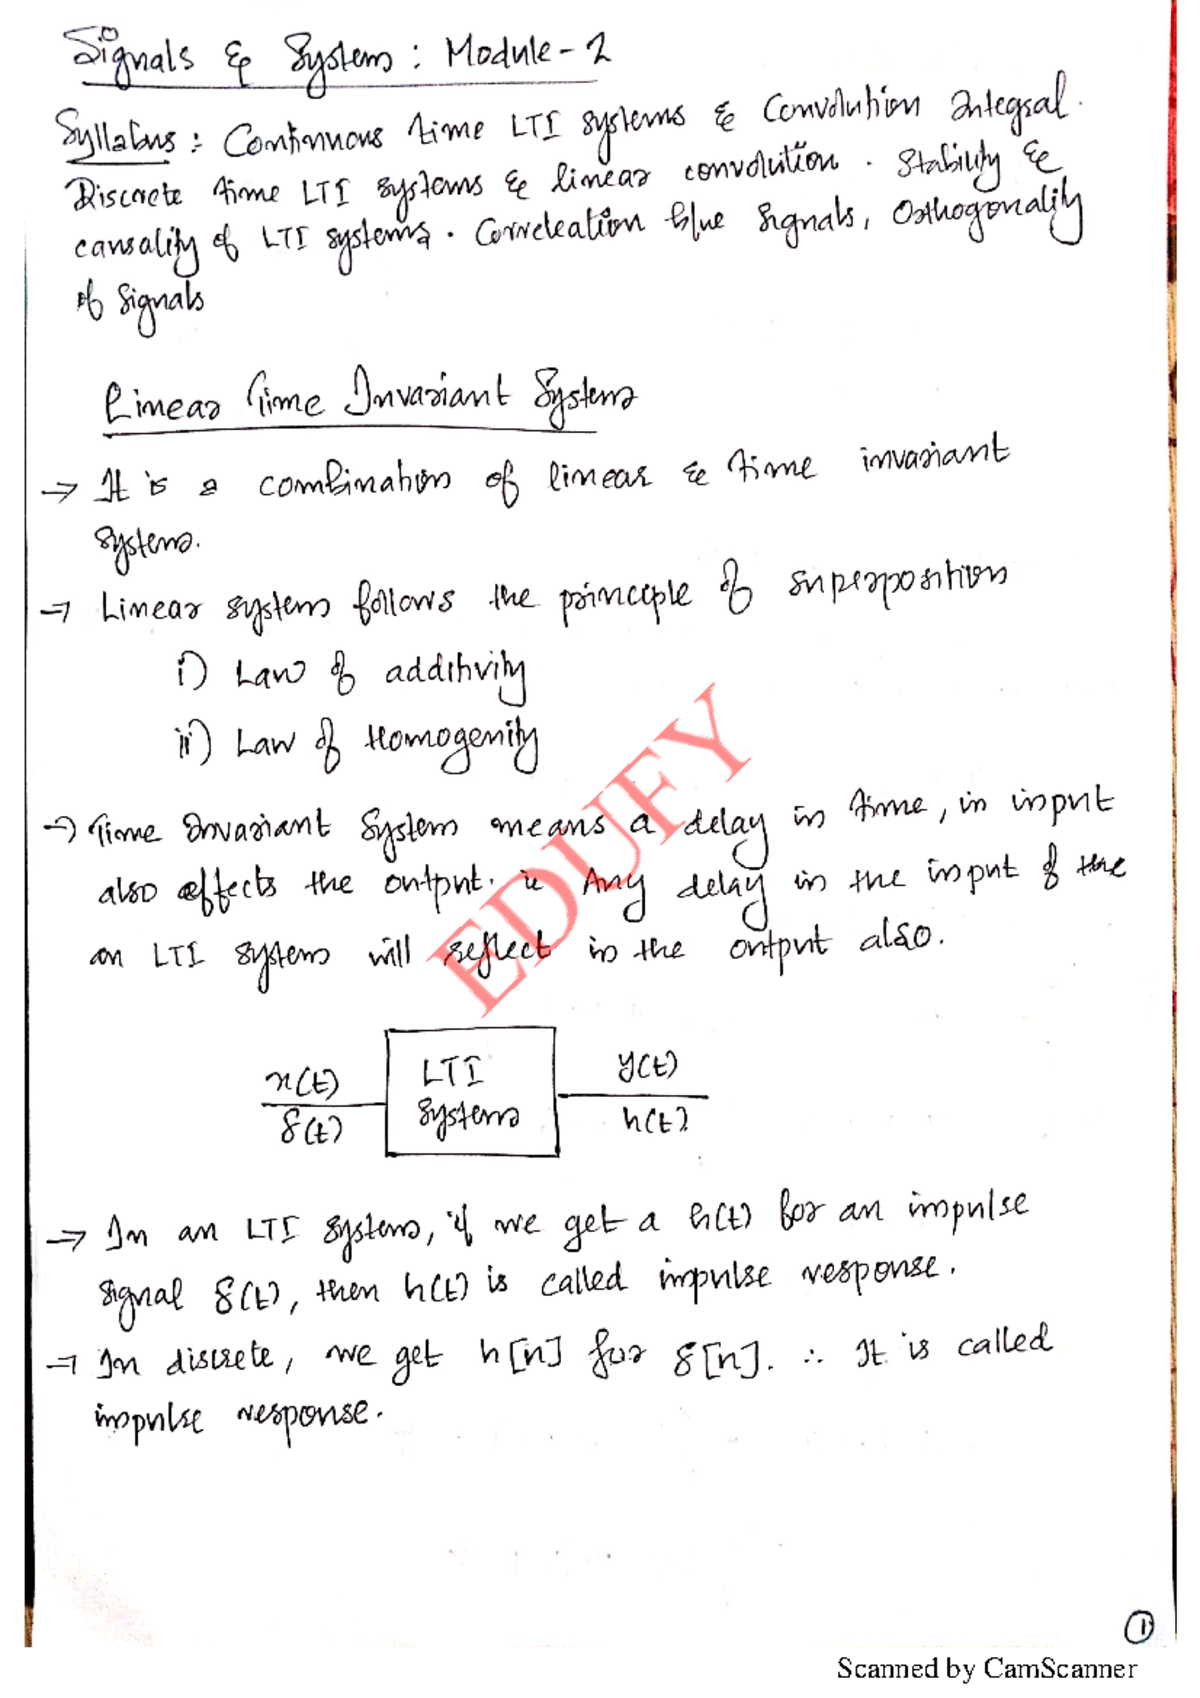 Signals & System : Module - 2
Syllabus : Continuous time LTI systems & Convolution Integral.
Discrete time LTI systems & linear convolution. Stability &
causality of LTI systems. Correleation b/w signals, Orthogonality
of signals
Linear Time Invariant System
→ It is a combination of linear & time invariant
system.
→ Linear system follows the principle of superposition
i) Law of additivity
ii) Law of Homogenity
→ Time Invariant System means a delay in time, in input
also effects the output. ie Any delay in the input of the
an LTI system will reflect in the output also.
EDUFY
x(t)
δ(t)
LTI
System
y(t)
h(t)
→ In an LTI system, if we get a h(t) for an impulse
signal δ(t), then h(t) is called impulse response.
→ In discrete, we get h[n] for δ[n]. ∴ It is called
impulse response.
1
Scanned by CamScanner